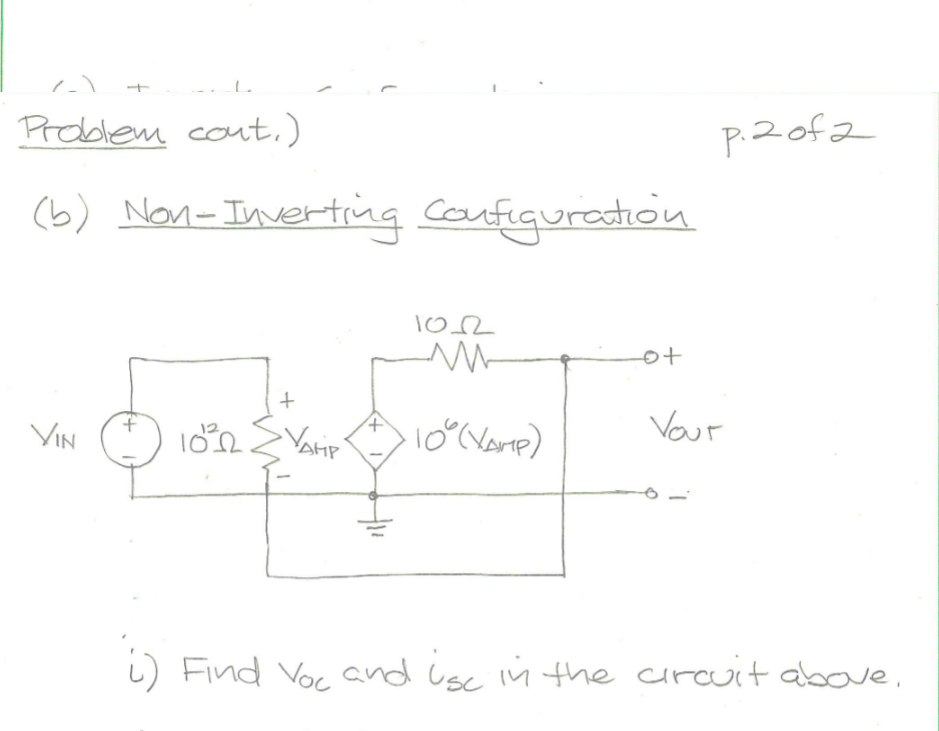 Problem cont.)
p.2 of 2
(b) Non-Inverting Configuration
10Ω
+
+
+
VIN
10¹²Ω
VAMP
10⁶(VAMP)
VOUT
-
-
-
-
i) Find Voc and isc in the circuit above.